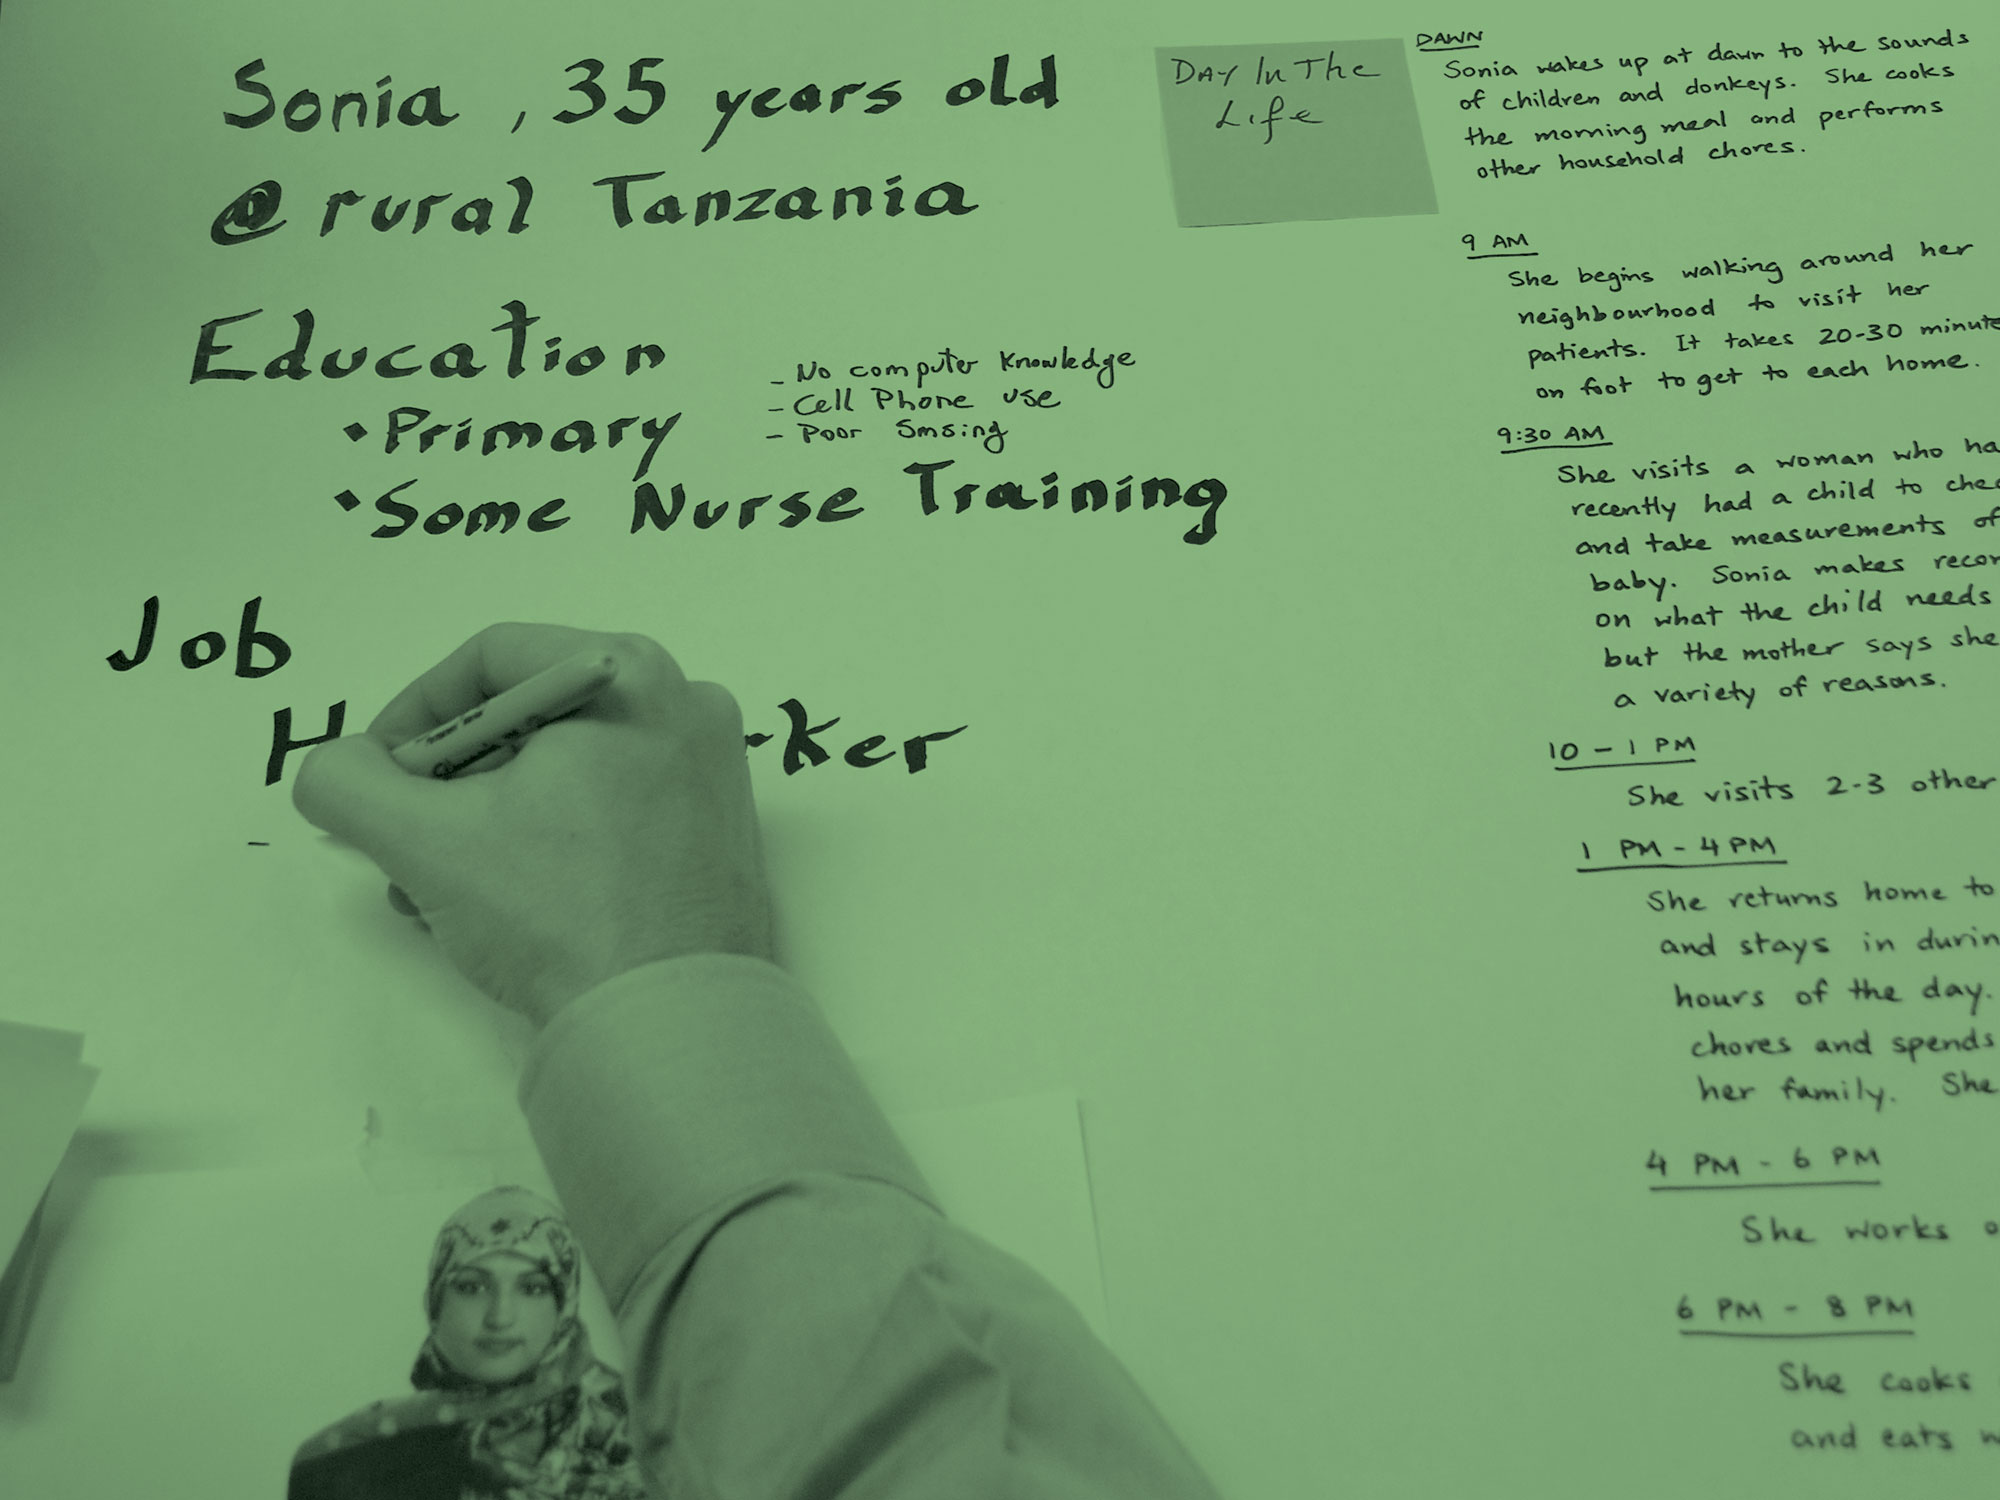 Sonia, 35 years old
@ rural Tanzania
Education
• Primary
• Some Nurse Training
- No computer Knowledge
- Cell Phone use
- Poor Smsing
Job
-
DAY In The
Life
DAWN
Sonia wakes up at dawn to the sounds
of children and donkeys. She cooks
the morning meal and performs
other household chores.
9 AM
She begins walking around her
neighbourhood to visit her
patients. It takes 20-30 minute
on foot to get to each home.
9:30 AM
She visits a woman who ha
recently had a child to chec
and take measurements of
baby. Sonia makes recor
on what the child needs
but the mother says she
a variety of reasons.
10 - 1 PM
She visits 2-3 other
1 PM - 4 PM
She returns home to
and stays in durin
hours of the day.
chores and spends
her family. She
4 PM - 6 PM
She works
6 PM - 8 PM
She cooks
and eats